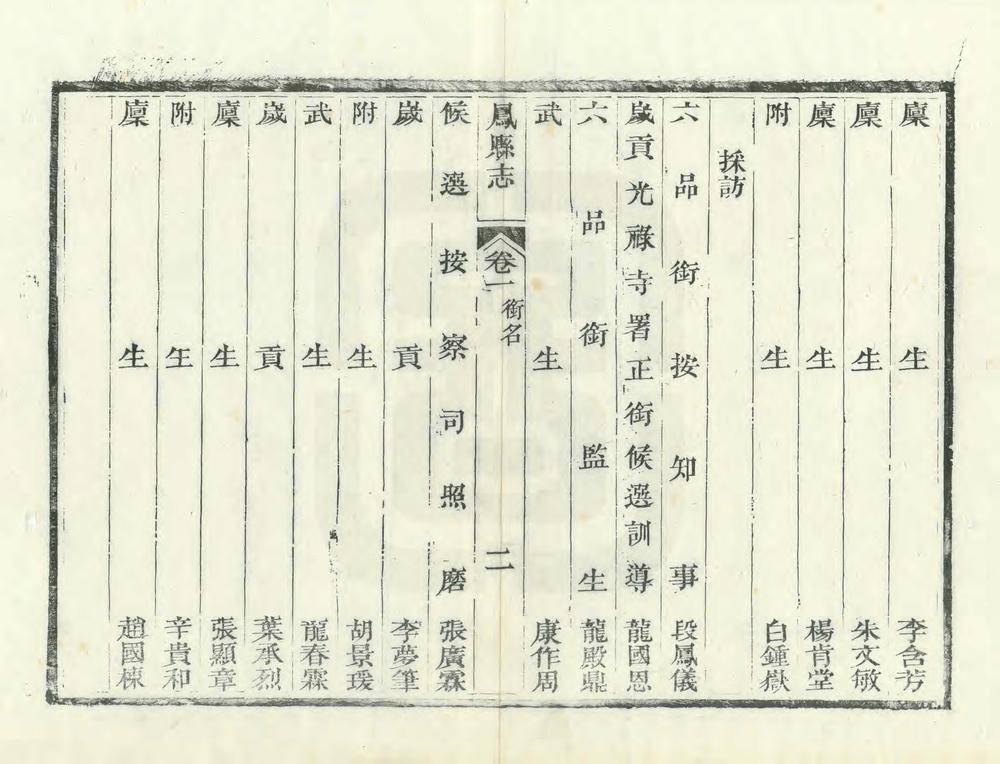 廩生李含芳
廩生朱文敏
廩生楊肯堂
附生白鍾嶽
採訪
六品銜按知事段鳳儀
歲貢光祿寺署正銜候選訓導龍國恩
六品銜監生龍殿鼎
武生康作周
鳳縣志 卷一 銜名 二
候選按察司照磨張廣霖
歲貢李夢筆
附生胡景瑗
武生龍春霖
歲貢葉承烈
廩生張顯章
附生辛貴和
廩生趙國棟